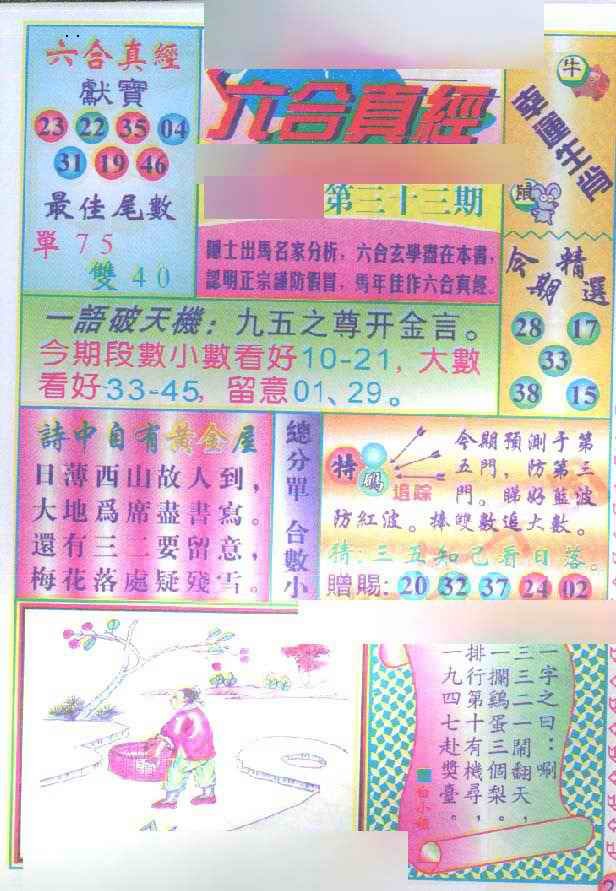 六合真經
獻寶
23 22 35 04
31 19 46
最佳尾數
單 75
雙 40
六合真經
第三十三期
隱士出馬名家分析，六合玄學盡在本書，
認明正宗謹防假冒，馬年佳作六合真經。
牛
幸運生肖
鼠
今期精選
28 17
33
38 15
一語破天機：九五之尊开金言。
今期段數小數看好10-21，大數
看好33-45，留意01、29。
詩中自有黃金屋
日薄西山故人到，
大地爲席盡書寫。
還有三二要留意，
梅花落處疑殘雪。
總分單 合數小
特碼
追踪
今期預測于第
五門，防第三
門。睇好藍波
防紅波。捧雙數追大數。
猜:三五知己看日落。
贈賜: 20 32 37 24 02
一字之曰：唰
三三二一鬧翻天，
一攔鷄蛋三個梨。
排行第十有機尋，
一九四七赴獎臺。
白小姐